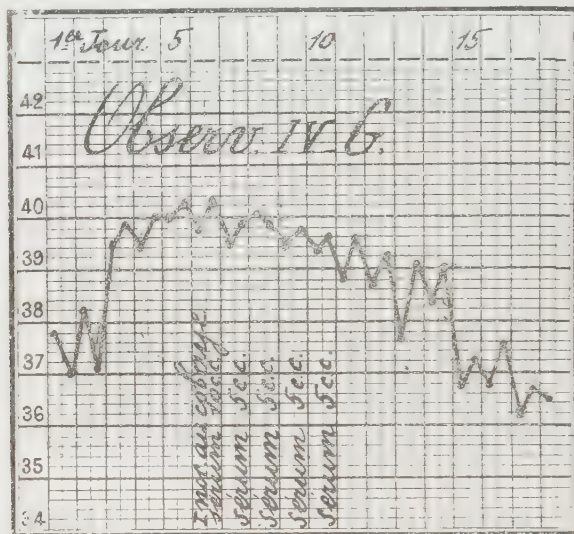 1er Jour. 5 10 15
42
Observ. IV G.
41
40
39
38
37
36
35
34
Inoc. au cobaye.
sérum 10 c.c.
sérum 5 c.c.
sérum 5 c.c.
sérum 5 c.c.
sérum 5 c.c.